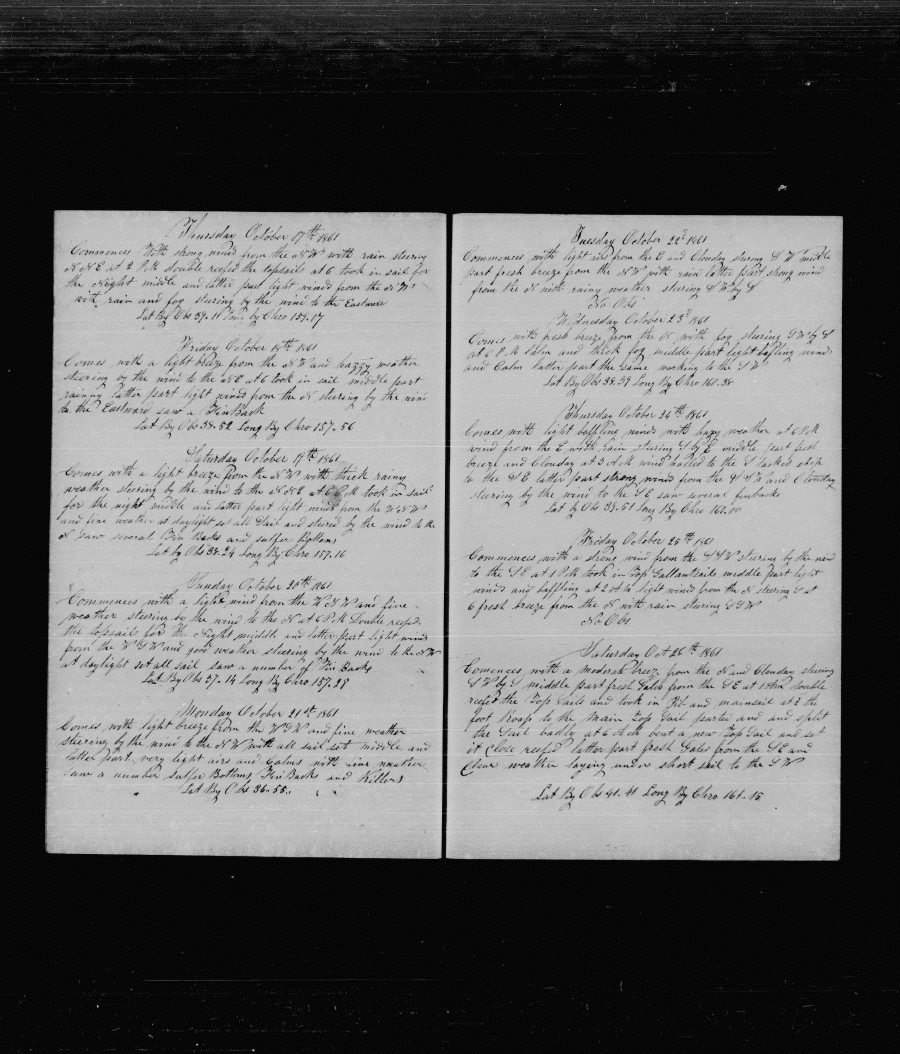 Thursday October 17th 1861
Commences With strong wind from the N W with rain steering
N N E at 2 P.M double reefed the topsails at 6 took in sail for
the Night middle and latter part light winds from the N W
with rain and fog steering by the wind to the Eastward
Lat By Obs 39.11 Long by Chro 159.07
Friday October 18th 1861
Comes with a light breeze from the N W and hazy weather
steering by the wind to the N E at 6 took in sail middle part
rainny latter part light winds from the N steering by the wind
to the Eastward saw a Fin Back
Lat By Obs 38.52 Long By Chro 157-56
Saturday October 19th 1861
Comes with a light breeze from the N W with thick rainy
weather steering by the wind to the N N E at 6 P.M took in sail
for the night middle and latter part light winds from the W N W
and fine weather at daylight set all Sail and steered by the wind to the
N saw several Fin Backs and sulfer Bottoms
Lat by Obs 38.24 Long By Chro 157.16
Sunday October 20th 1861
Commences with a light wind from the W N W and fine
weather steering by the wind to the N at 6 P.M Double reefed
the topsails for the Night middle and latter part light winds
from the W S W and good weather steering by the wind to the N W
At daylight set all sail saw a number of Fin Backs
Lat By Obs 37-14 Long By Chro 157.28
Monday October 21st 1861
Comes with light breeze from the W S W and fine weather
steering by the wind to the N W with all sail set middle and
latter part very light airs and Calms with fine weather
saw a number sulfer Bottoms, Fin Backs and Killers
Lat By Obs 36-55..
Tuesday October 22d 1861
Commences with light airs from the E and Clouday steering S W middle
part fresh breeze from the N W with rain latter part strong wind
from the N with rainy weather steering S W by S
No Obs
Wednesday October 23d 1861
Comes with fresh breeze from the N with fog steering S W by S
at 6 P.M Calm and thick fog middle part light bafling winds
and Calm latter part the same working to the S W
Lat By Obs 38.39 Long By Chro 160.38
Thursday October 24th 1861
Comes with light baffling winds with hazy weather at 6 P.M
wind from the E with rain steering S by E middle part fresh
breeze and Clouday at 3 A.M wind hailed to the S tacked ship
to the S E latter part strong wind from the S S W and Clouday
steering by the wind to the S E saw several finbacks
Lat by Obs 39.51 Long By Chro 160.00
Friday October 25th 1861
Commences with a strong wind from the S S W steering by the wind
to the S E at 1 P.M took in Top Gallantsails middle part light
winds and baffling at 2 A.M light wind from the N steering S at
6 fresh breeze from the N with rain steering S S W
No Obs
Saturday Oct 26th 1861
Comences with a moderate breeze from the N and Clouday steering
S W by S middle part fresh Gales from the S E at 1 A.M double
reefed the Top Sails and took in Jib and mainsail at 2 the
foot Roap to the Main Top Sail parted and and split
the Sail badly at 6 A.M bent a new Top Sail and set
it Close reefed latter part fresh Gales from the S E and
Clear weather laying under short sail to the S W
Lat By Obs 41.41 Long By Chro 161.15